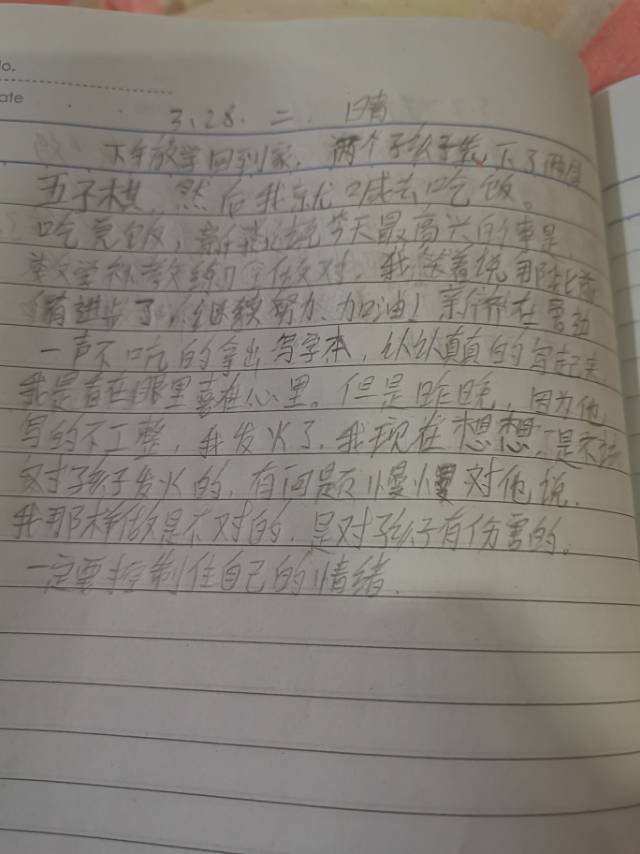 o.
ate
3.28. 二. 晴
下午放学回到家，两个孩子先下了两局
五子棋，然后我就喊去吃饭。
吃完饭，新 说今天最高兴的事是
数学 练习 做对，我笑着说那
有进步了，继续努力，加油！新 在
一声不吭的拿出写字本，认认真真的写起来
我是看在眼里喜在心里。但是昨晚，因为他
写的不工整，我发火了，我现在想想，是不该
对孩子发火的，有问题慢慢对他说，
我那样做是不对的，是对孩子有伤害的。
一定要控制住自己的情绪.